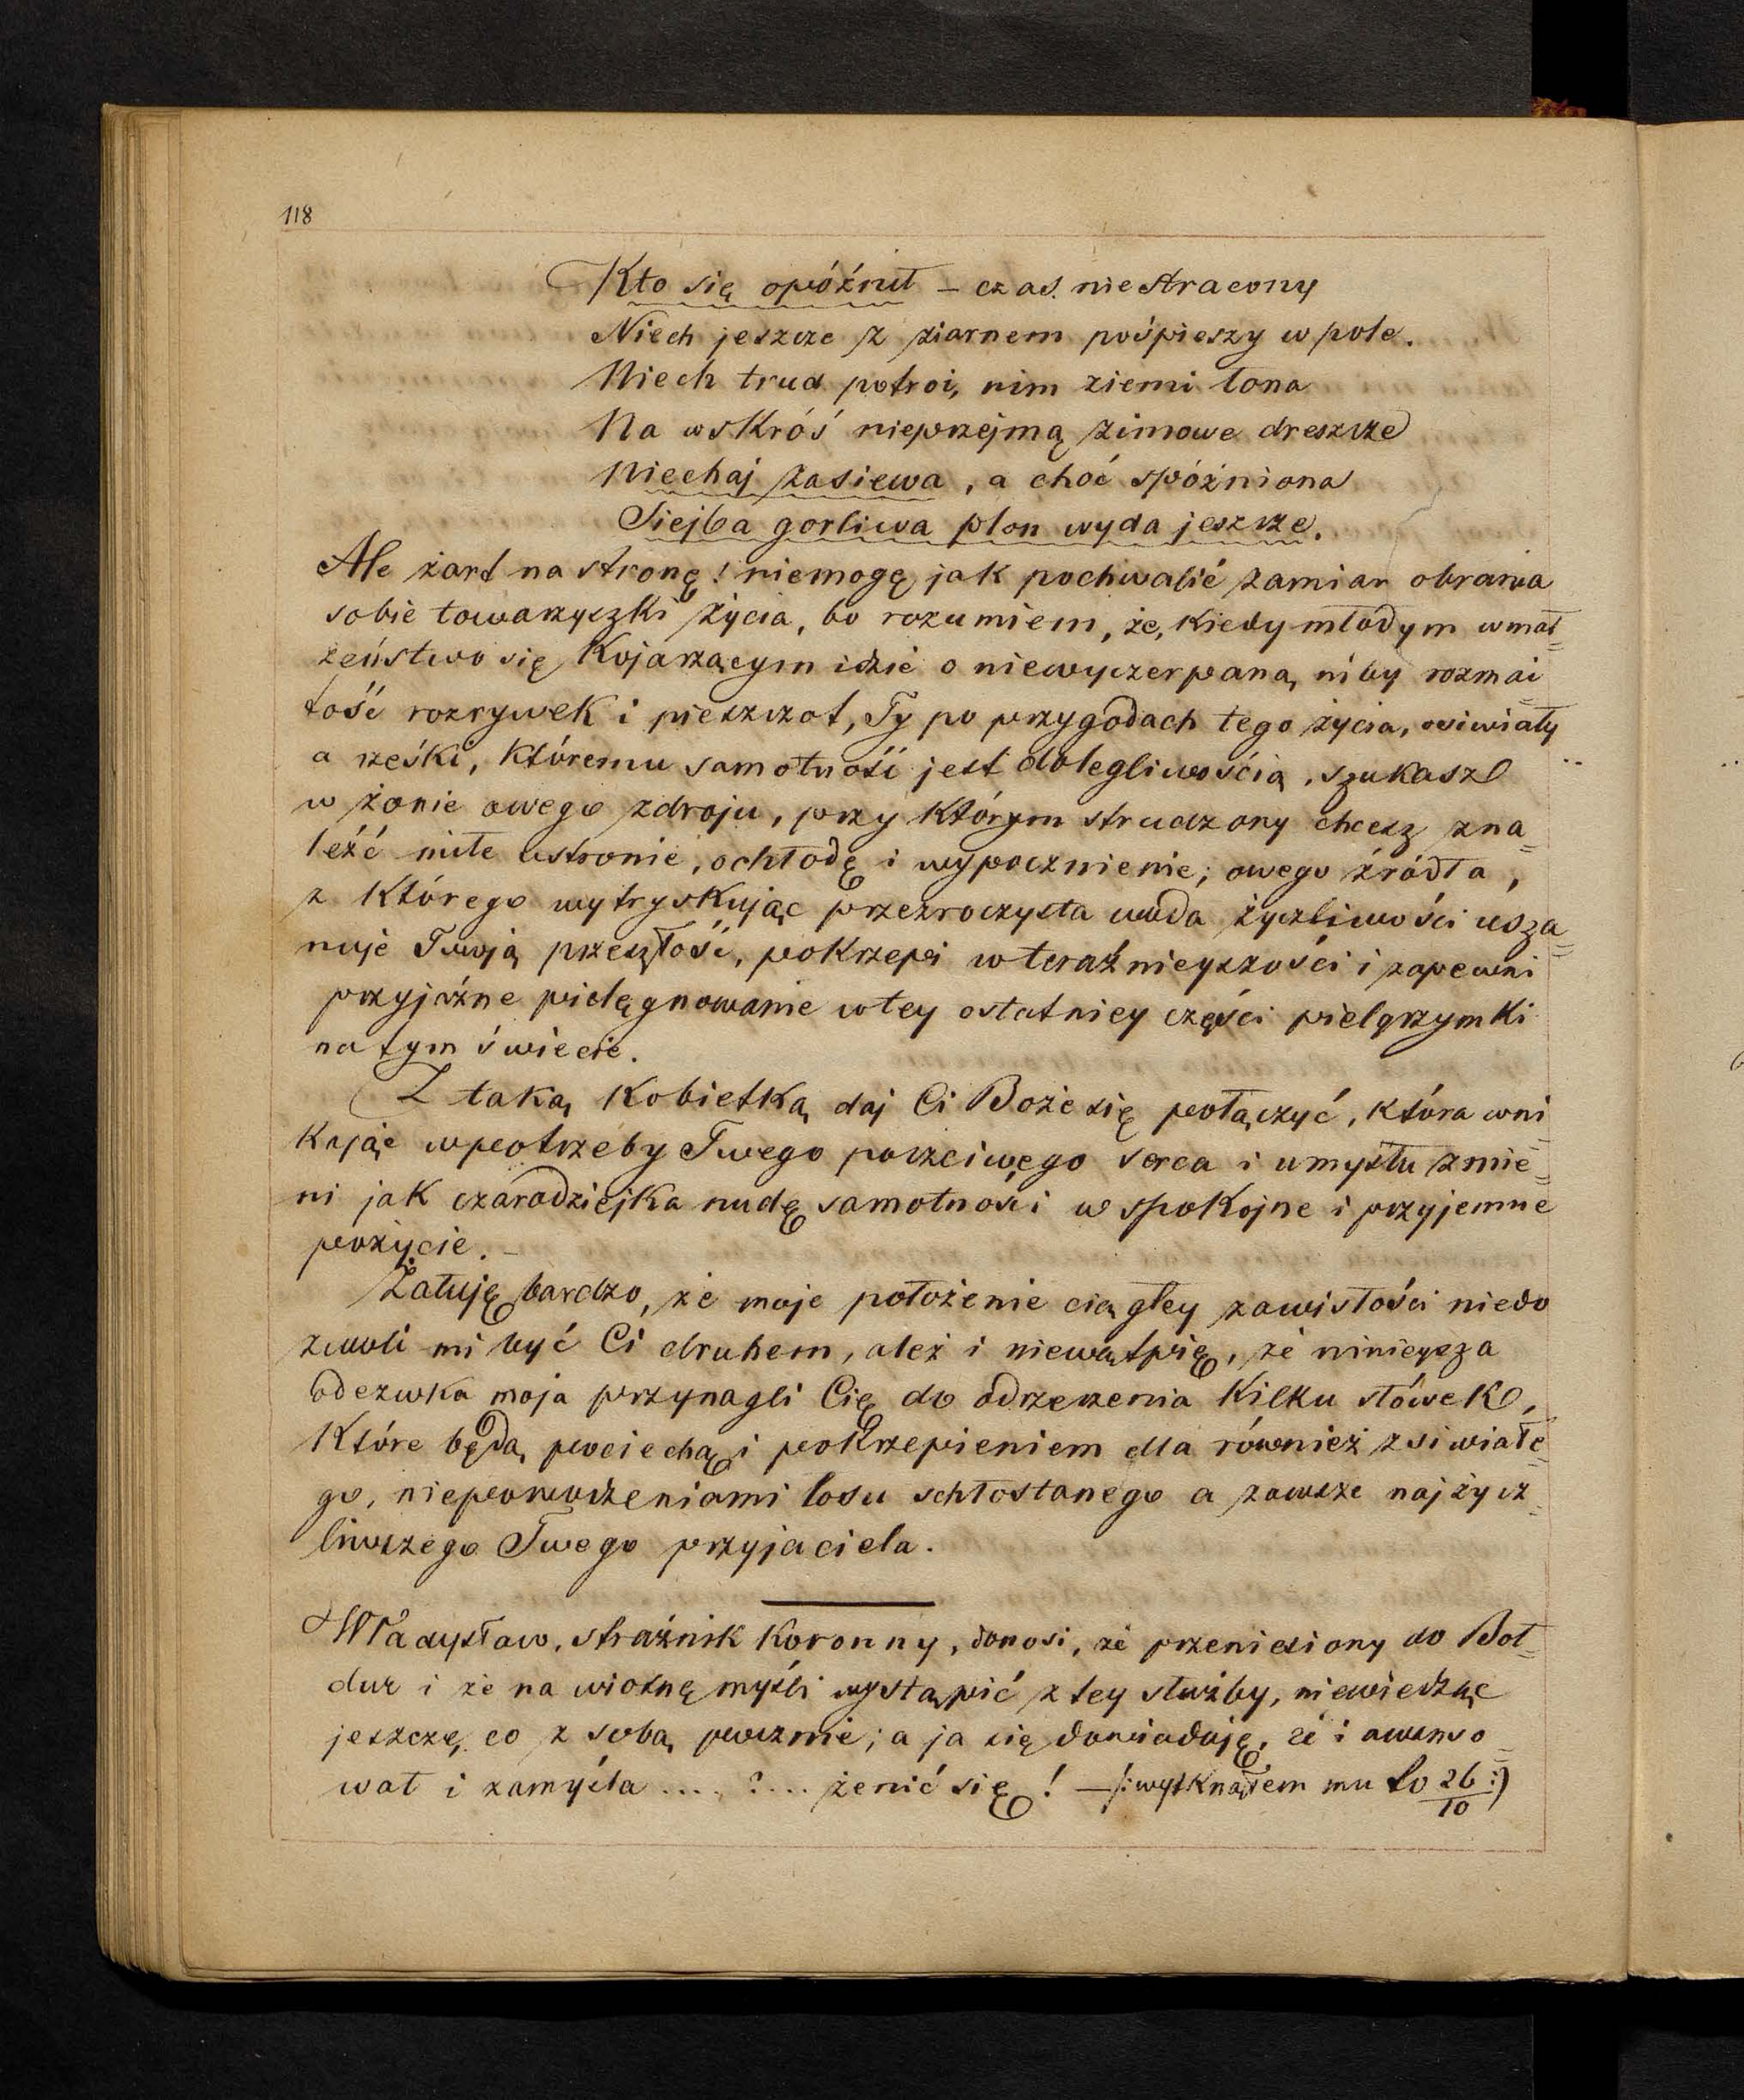 118
Kto się opóźnił – czas niestracony
Niech jeszcze z ziarnem pośpieszy w pole.
Niech trud potroi, nim ziemi łona
Na wskróś nieprzejmą zimowe dreszcze
Niechaj zasiewa, a choć spóźniona
Siejba gorliwa plon wyda jeszcze.
Ale żart na stronę! niemogę jak pochwalić zamiar obrania
sobie towarzyszki życia, bo rozumiem, że, kiedy młodym w mał=
żeństwo się kojarzącym idzie o niewyczerpaną niby rozmai=
tość rozrywek i pieszczot, Ty po przygodach tego życia, osiwiały
a rzeski, któremu samotność jest dolegliwością, szukasz
w żonie owego zdroju, przy którym strudzony chcesz zna=
leźć miłe ustronie, ochłodę i wypocznienie; owego źródła,
z którego wytryskując przezroczysta woda życzliwości usza=
nuje Twoją przeszłość, pokrzepi w teraźnieyszości i zapewni
przyjaźne pielęgnowanie w tey ostatniey części pielgrzymki
na tym świecie.
Z taką kobietką daj Ci Boże się połączyć, która wni=
kając w potrzeby Twego poczciwego serca i umysłu zmie=
ni jak czarodziejka nudę samotności w spokojne i przyjemne
pożycie. –
Żałuję bardzo, że moje położenie ciągłey zawisłości niedo
zwoli mi być Ci druhem, ależ i niewątpię, że ninieysza
odezwka moja przynagli Cię do odrzeczenia kilku słówek,
które będą pociechą i pokrzepieniem dla również zsiwiałe=
go, niepowodzeniami losu schłostanego a zawsze najżycz=
liwszego Twego przyjaciela.
Władysław, strażnik koronny, donosi, że przeniesiony do Boł=
dur i że na wiosnę myśli wystąpić z tey służby, niewiedząc
jeszcze, co z sobą pocznie; a ja się dowiaduję, że i awanso=
wał i zamyśla .... ? ... żenić się! – /: wytknąłem mu to 26/10 :)